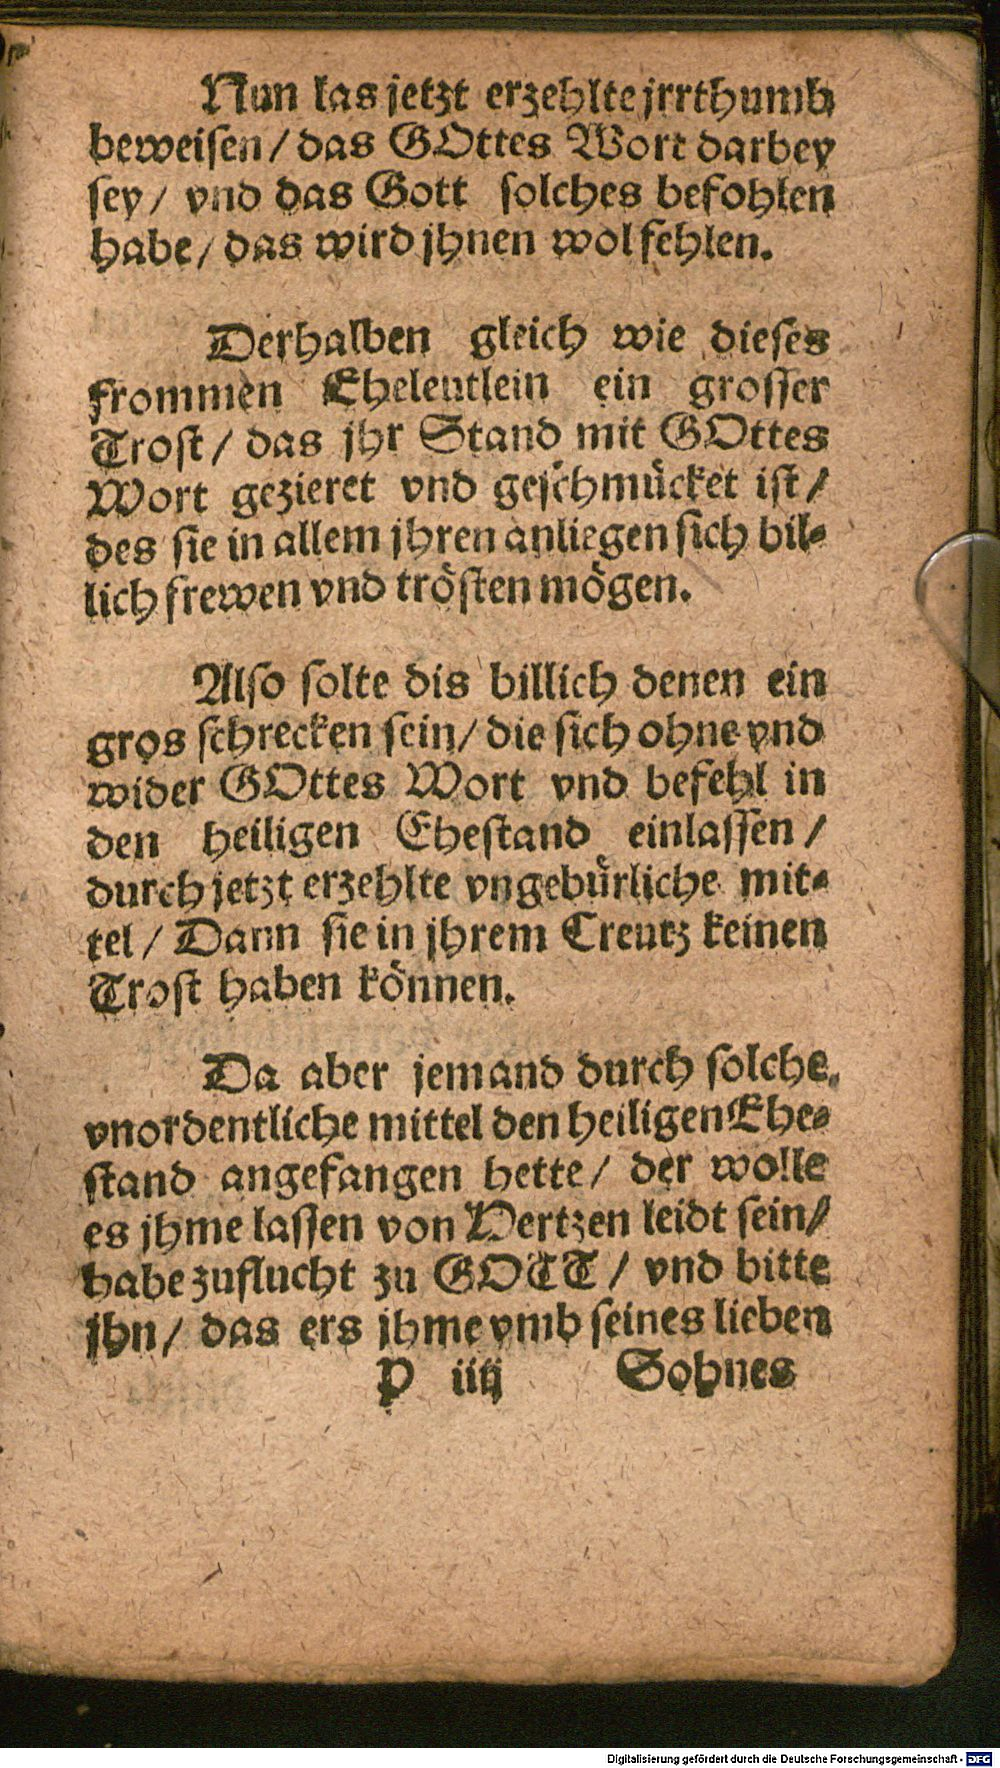 Nun las jetzt erzehlte jrrthumb
beweisen / das GOttes Wort darbey
sey / vnd das Gott solches befohlen
habe / das wird jhnen wol fehlen.
Derhalben gleich wie dieses
frommen Eheleutlein ein grosser
Trost / das jhr Stand mit GOttes
Wort gezieret vnd geschmücket ist /
des sie in allem jhren anliegen sich bil-
lich frewen vnd trösten mögen.
Also solte dis billich denen ein
gros schrecken sein / die sich ohne vnd
wider GOttes Wort vnd befehl in
den heiligen Ehestand einlassen /
durch jetzt erzehlte vngebürliche mit-
tel / Dann sie in jhrem Creutz keinen
Trost haben können.
Da aber jemand durch solche
vnordentliche mittel den heiligen Ehe-
stand angefangen hette / der wolle
es jhme lassen von Hertzen leidt sein /
habe zuflucht zu GOTT / vnd bitte
jhn / das ers jhme vmb seines lieben
P iiij Sohnes
Digitalisierung gefördert durch die Deutsche Forschungsgemeinschaft - DFG